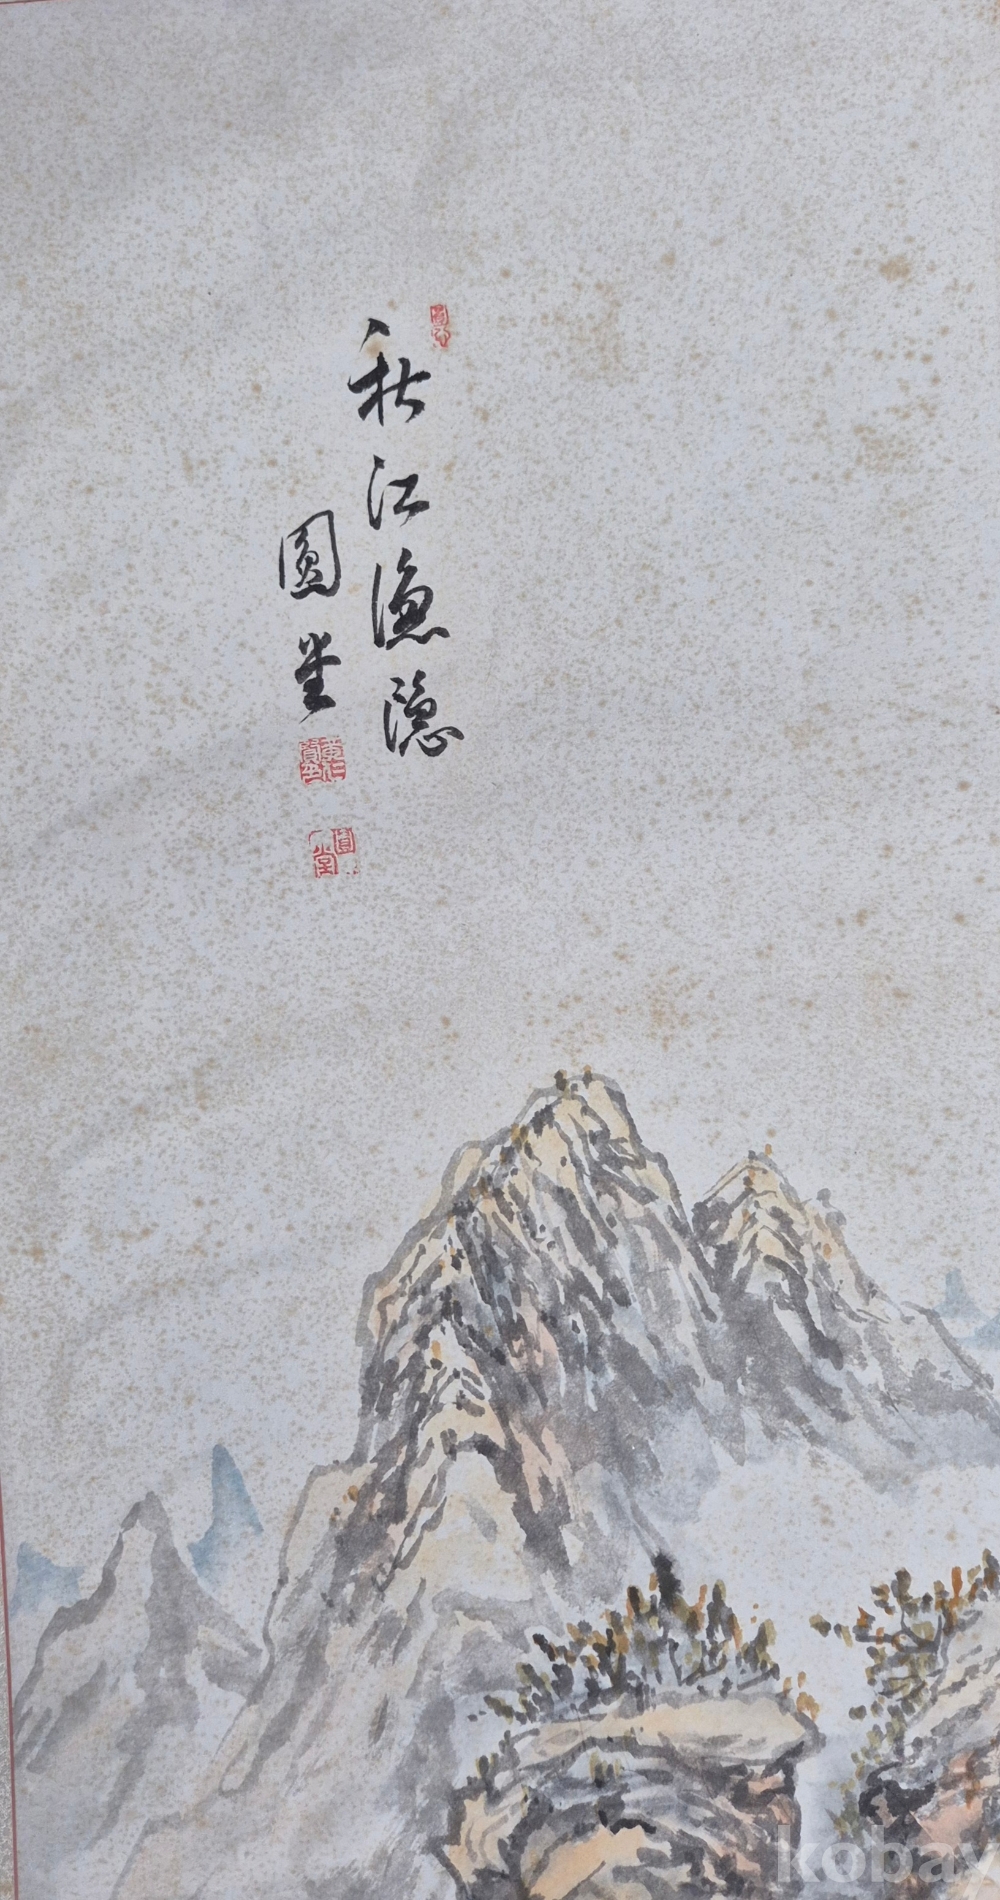 秋江漁隱
圓堂
kobay